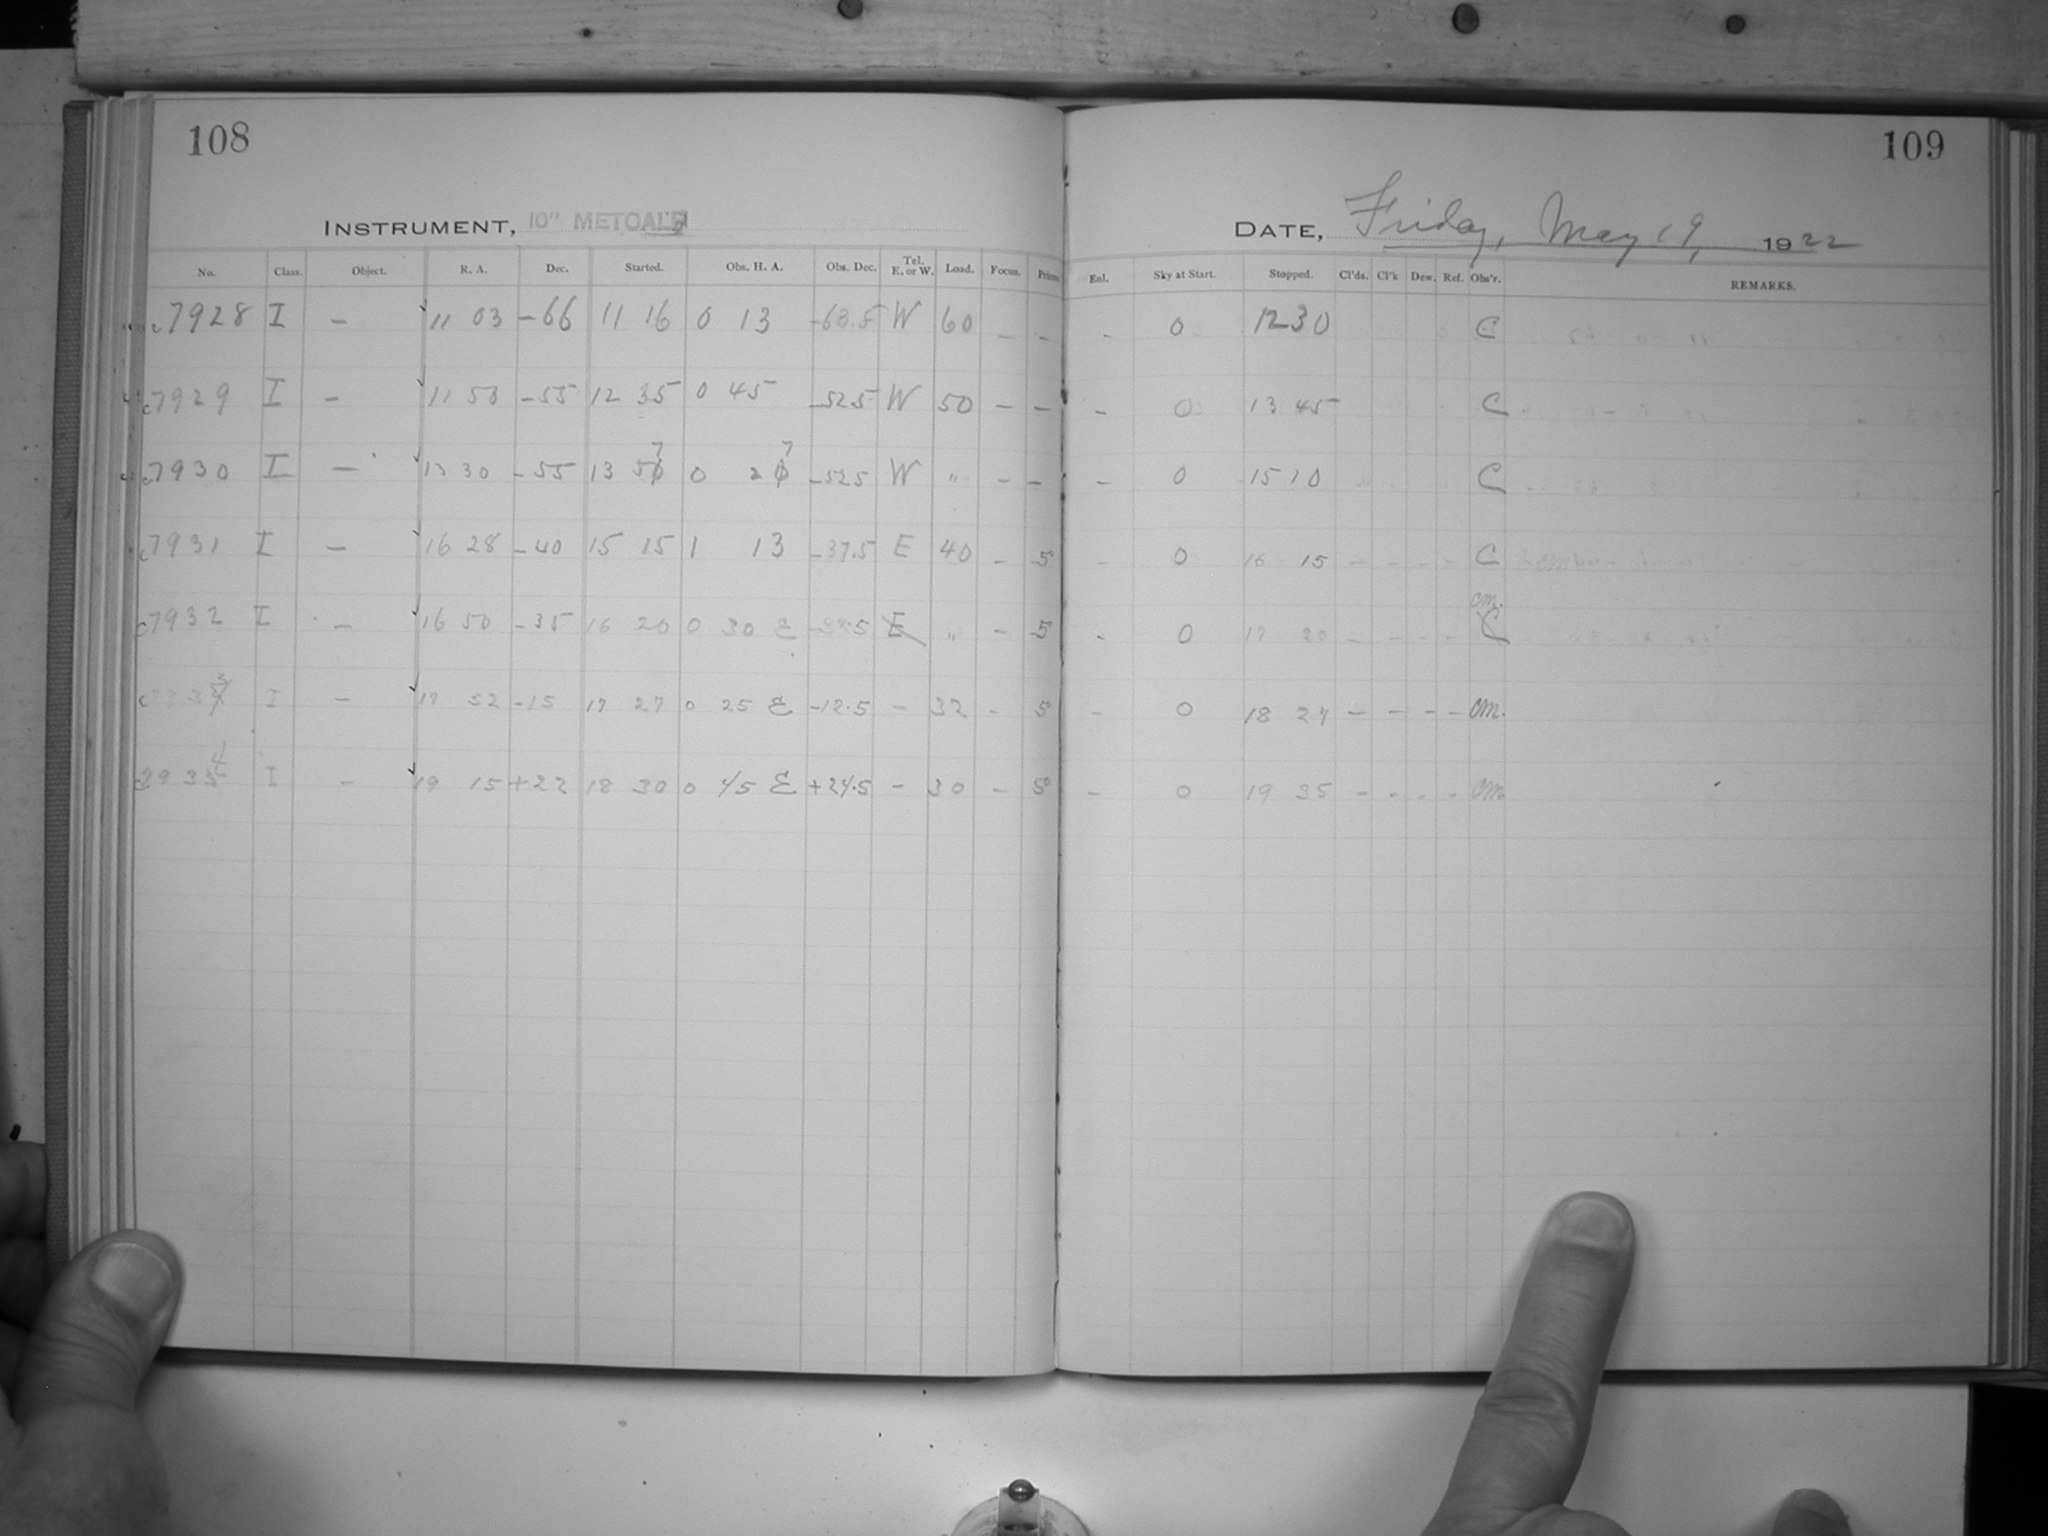 108
INSTRUMENT, 10" METCALF
No. Class. Object. R. A. Dec. Started. Obs. H. A. Obs. Dec. Tel. E. or W. Load. Focus.
c7928 I – 11 03 -66 11 16 0 13 -63.5 W 60 – –
c7929 I – 11 50 -55 12 35 0 45 -52.5 W 50 – –
c7930 I – 13 30 -55 13 57 0 27 -52.5 W " – –
c7931 I – 16 28 -40 15 15 1 13 -37.5 E 40 – 5
c7932 I – 16 50 -35 16 20 0 30 E E " – 5
I – 17 52 -15 17 27 0 25 E -12.5 – 32 - 5
I – 19 15 +22 18 30 0 45 E +24.5 – 30 – 5
109
DATE, Friday, May 19, 1922
Enl. Sky at Start. Stopped. Cl'ds. Cl'k Dew. Ref. Obs'r. REMARKS.
- 0 12 30 C
- 0 13 45 C
- 0 15 10 C
- 0 16 15 - - - - C
cm.
- 0 17 20 - - - - C
- 0 18 27 - - - - cm.
- 0 19 35 - - - - cm